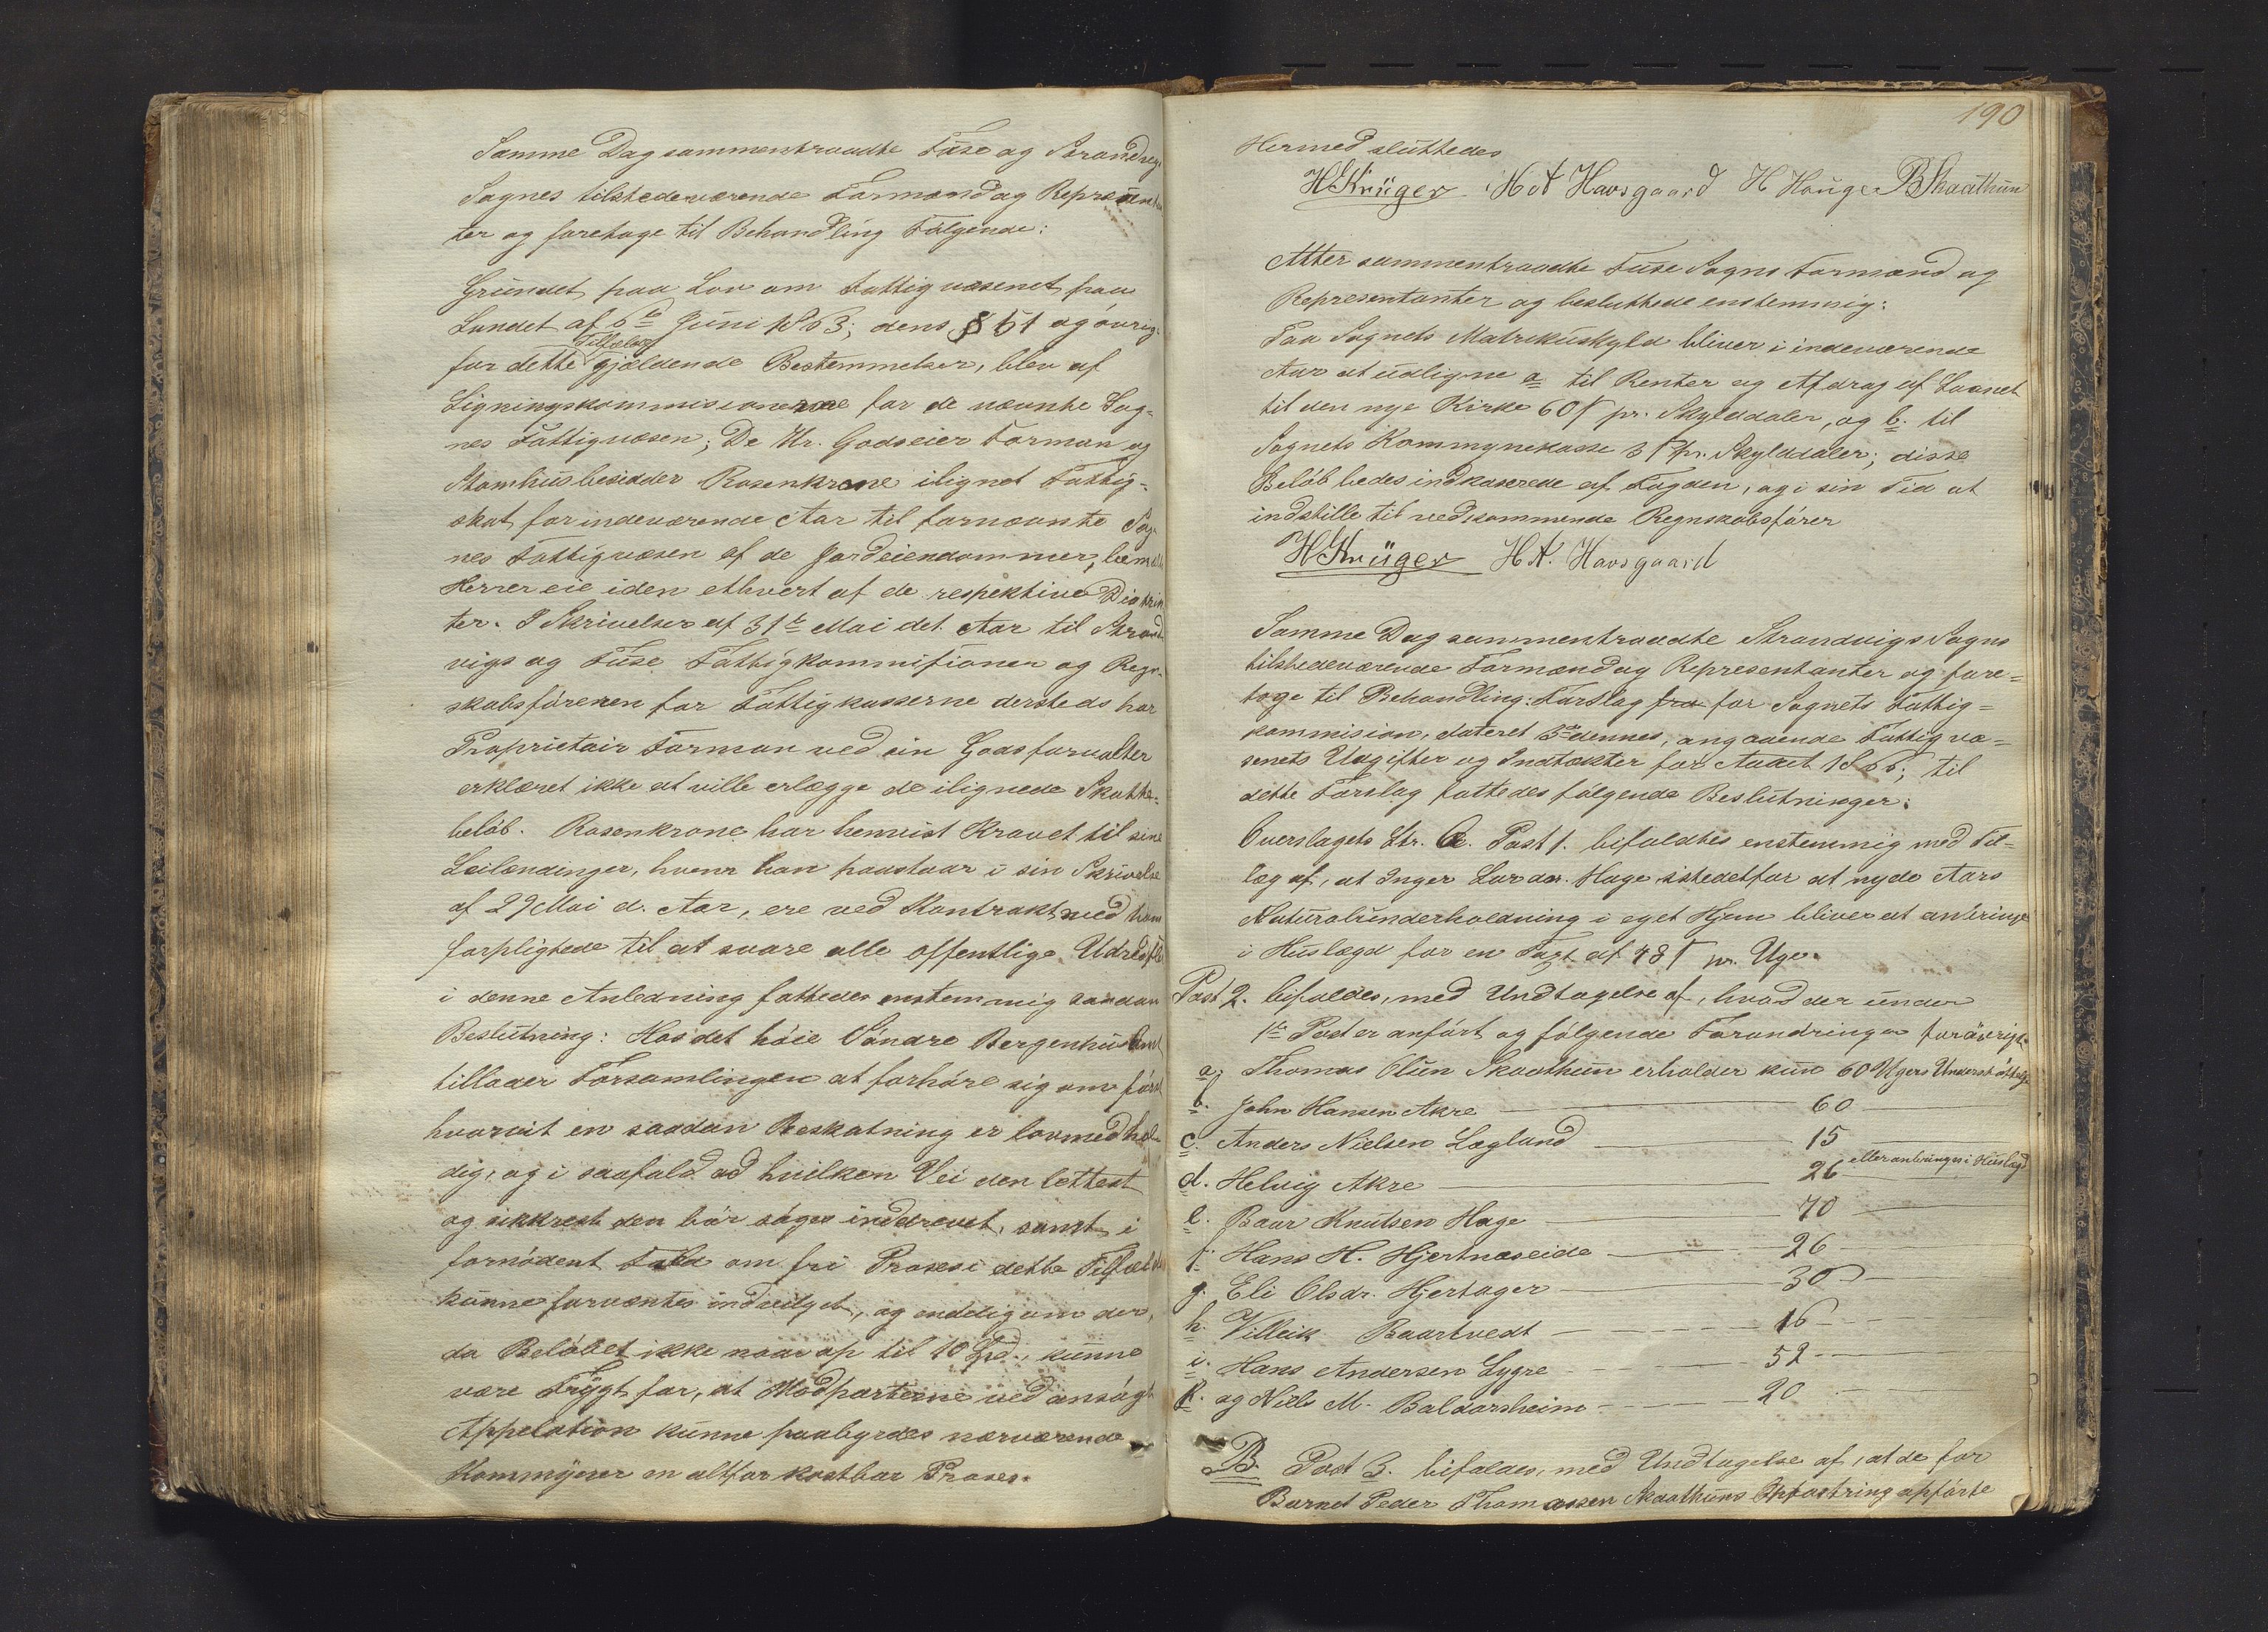 Samme Dag sammentraadte Fuse og Strandvigs
Sognes tilstedeværende Formænd og Represæntan
ter og foretoge til Behandling Følgende:
Grundet paa Lov om Fattigvæsenet paa
Landet af 6te Juni 1863; dens § 51 og øvrige
for dette Tilfælde gjældende Bestemmelser, blev af
Ligningskommisionerne for de nævnte Sog-
nes Fattigvæsen; De Hr. Godseier Forman og
Stamhusbesidder Rosenkrone ilignet Fattig-
skat for indeværende Aar til fornævnte Sog-
nes Fattigvæsen af de Jordeiendommer, bemeldte
Herrer eie i den ethvert af de respektive Distrik
ter. I Skrivelser af 31te Mai det Aar til Strand
vigs og Fuse Fattigkommisioner og Regn-
skabsføreren for Fattigkasserne dersteds har
Proprietair Forman ved sin Godsforvalter
erklæret ikke at ville erlægge de ilignede Skatte-
beløb. Rosenkrone har henvist Kravet til sine
Leilændinger, hvem han paastaar i sin Skrivelse
af 29 Mai d. Aar, ere ved Kontrakt med ham
forpligtede til at svare alle offentlige Udredsler
i denne Anledning fattedes enstemmig saadan
Beslutning: Hos det høie Søndre Bergenhus Amt
tillader Forsamlingen at forhøre sig om først
hvorvit en saadan Beskatning er lovmedhol-
dig, og i saafald ad hvilken Vei den lettest
og sikkrest den bør søges inddrevet, samt i
fornødent Fald om fri Proses i dette Tilfælde
kunne forventes indvilget, og endelig om der,
da Beløbet ikke naar op til 10 Spd., kunne
være Frygt for, at Modparterne ved ansøgt
Appelation kunne paabyrdes nærværende
Kommyner en altfor kostbar Proses.
190
Hermed sluttedes
H Krüger H A Havsgaard H Hauge B Skaathun
Atter sammentraadte Fuse Sogns Formænd og
Representanter og besluttede enstemmig:
Paa Sognets Matrikuskyld bliver i indeværende
Aar at udligne a til Renter og Afdrag af Laanet
til den nye Kirke 60 ſ pr. Skylddaler, og b. til
Sognets Kommynekasse 3 ſ pr. Skylddaler; disse
Beløb bedes indkaserede af Fogden, og i sin Tid at
indstille til vedkommende Regnskabsfører
H Krüger H A. Havsgaard
Samme Dag sammentraadte Strandvigs Sogns
tilstedeværende Formænd og Representanter og fore-
toge til Behandling: Forslag fra for Sognets Fattig-
kommision, dateret 3de dennes, angaaende Fattigvæ-
senets Udgifter og Indtækter for Aaret 1866; til
dette Forslag fattedes følgende Beslutninger:
Overslagets Ltr. A. Post 1. bifaldtes enstemmig med Til-
læg af, at Inger Larsdr. Hage istedetfor at nyde Aars
Naturalunderholdning i eget Hjem bliver at anbringe
i Huslægd for en Taxt af 48 ſ pr. Uge.
Post 2. bifaldes, med Undtagelse af, hvad der under
1ste Post er anført og følgende Forandringer forøvrigt.
a. Thomas Olsen Skaathun erholder kun 60 Ugers Understøttelse
b. John Hansen Akre 60
c. Anders Nielsen Lægland 15
d. Helvig Akre 26 eller anbringes i Huslægd
e. Baar Knutsen Hage 70
f. Hans H. Hjertnæseide 26
g. Eli Olsdr. Hjertager 30
h. Villeik Baartvedt 16
i. Hans Andersen Lygre 52
k. og Niels M. Baldersheim 20
B. Post 3. bifaldes, med Undtagelse af, at de for
Barnet Peder Thomassen Skaathuns Opfostring opførte